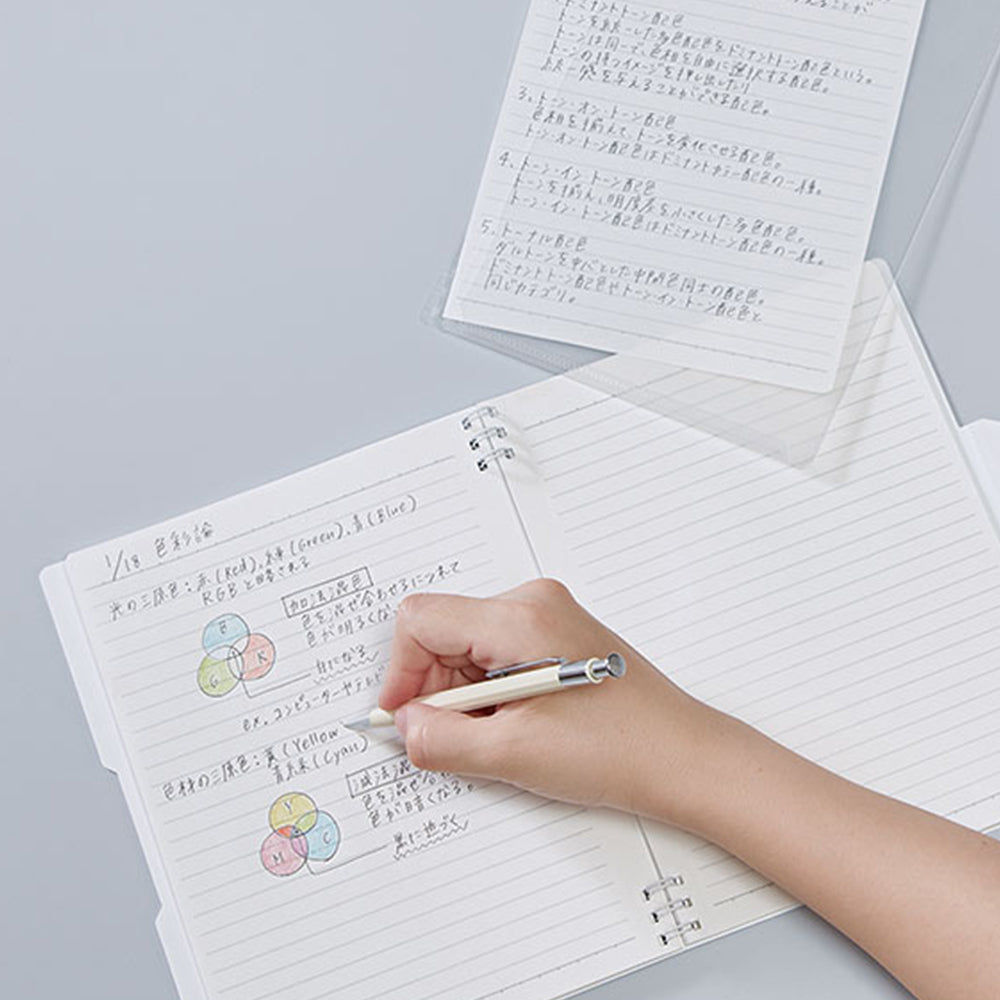 ドミナントトーン配色
トーンを統一した多色配色をドミナントトーン配色という。
トーンは同一で、色相を自由に選択する配色。
トーンの持つイメージを押し出したり
統一感を与えることができる配色。
3. トーン・オン・トーン配色
色相を揃えて、トーンを変化させる配色。
トーン・オン・トーン配色はドミナントカラー配色の一種。
4. トーン・イン・トーン配色
トーンを揃え、明度差を小さくした多色配色。
トーン・イン・トーン配色はドミナントトーン配色の一種。
5. トーナル配色
ダルトーンを中心とした中間色同士の配色。
ドミナントトーン配色やトーン・イン・トーン配色と
同じカテゴリ。
1/18 色彩論
光の三原色:赤(Red),緑(Green),青(Blue)
RGBと略される
加法混色
色を混ぜ合わせるにつれて
色が明るくな
B
R
G
白になる
ex. コンピューターやテレビ
色材の三原色:黄(Yellow
青緑(Cyan)
減法混
色を混ぜ合わ
色が暗くなる。
Y
C
M
黒に近づく